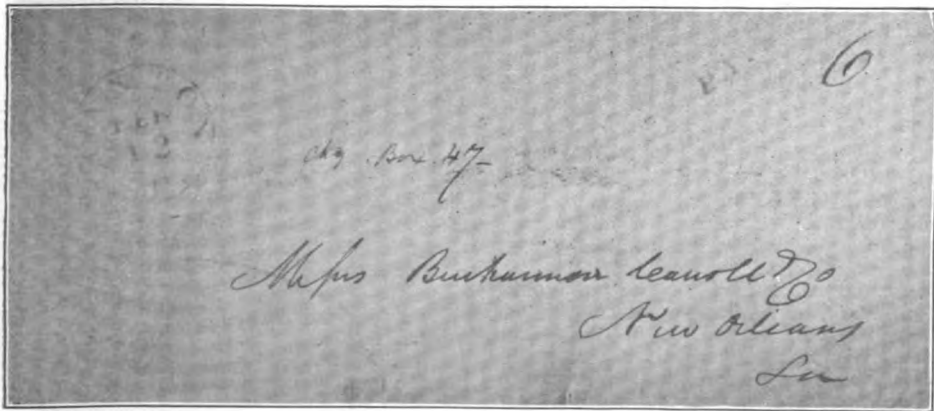 6
Chg Box 47
Messrs Buchannon Carroll & Co
New Orleans
La